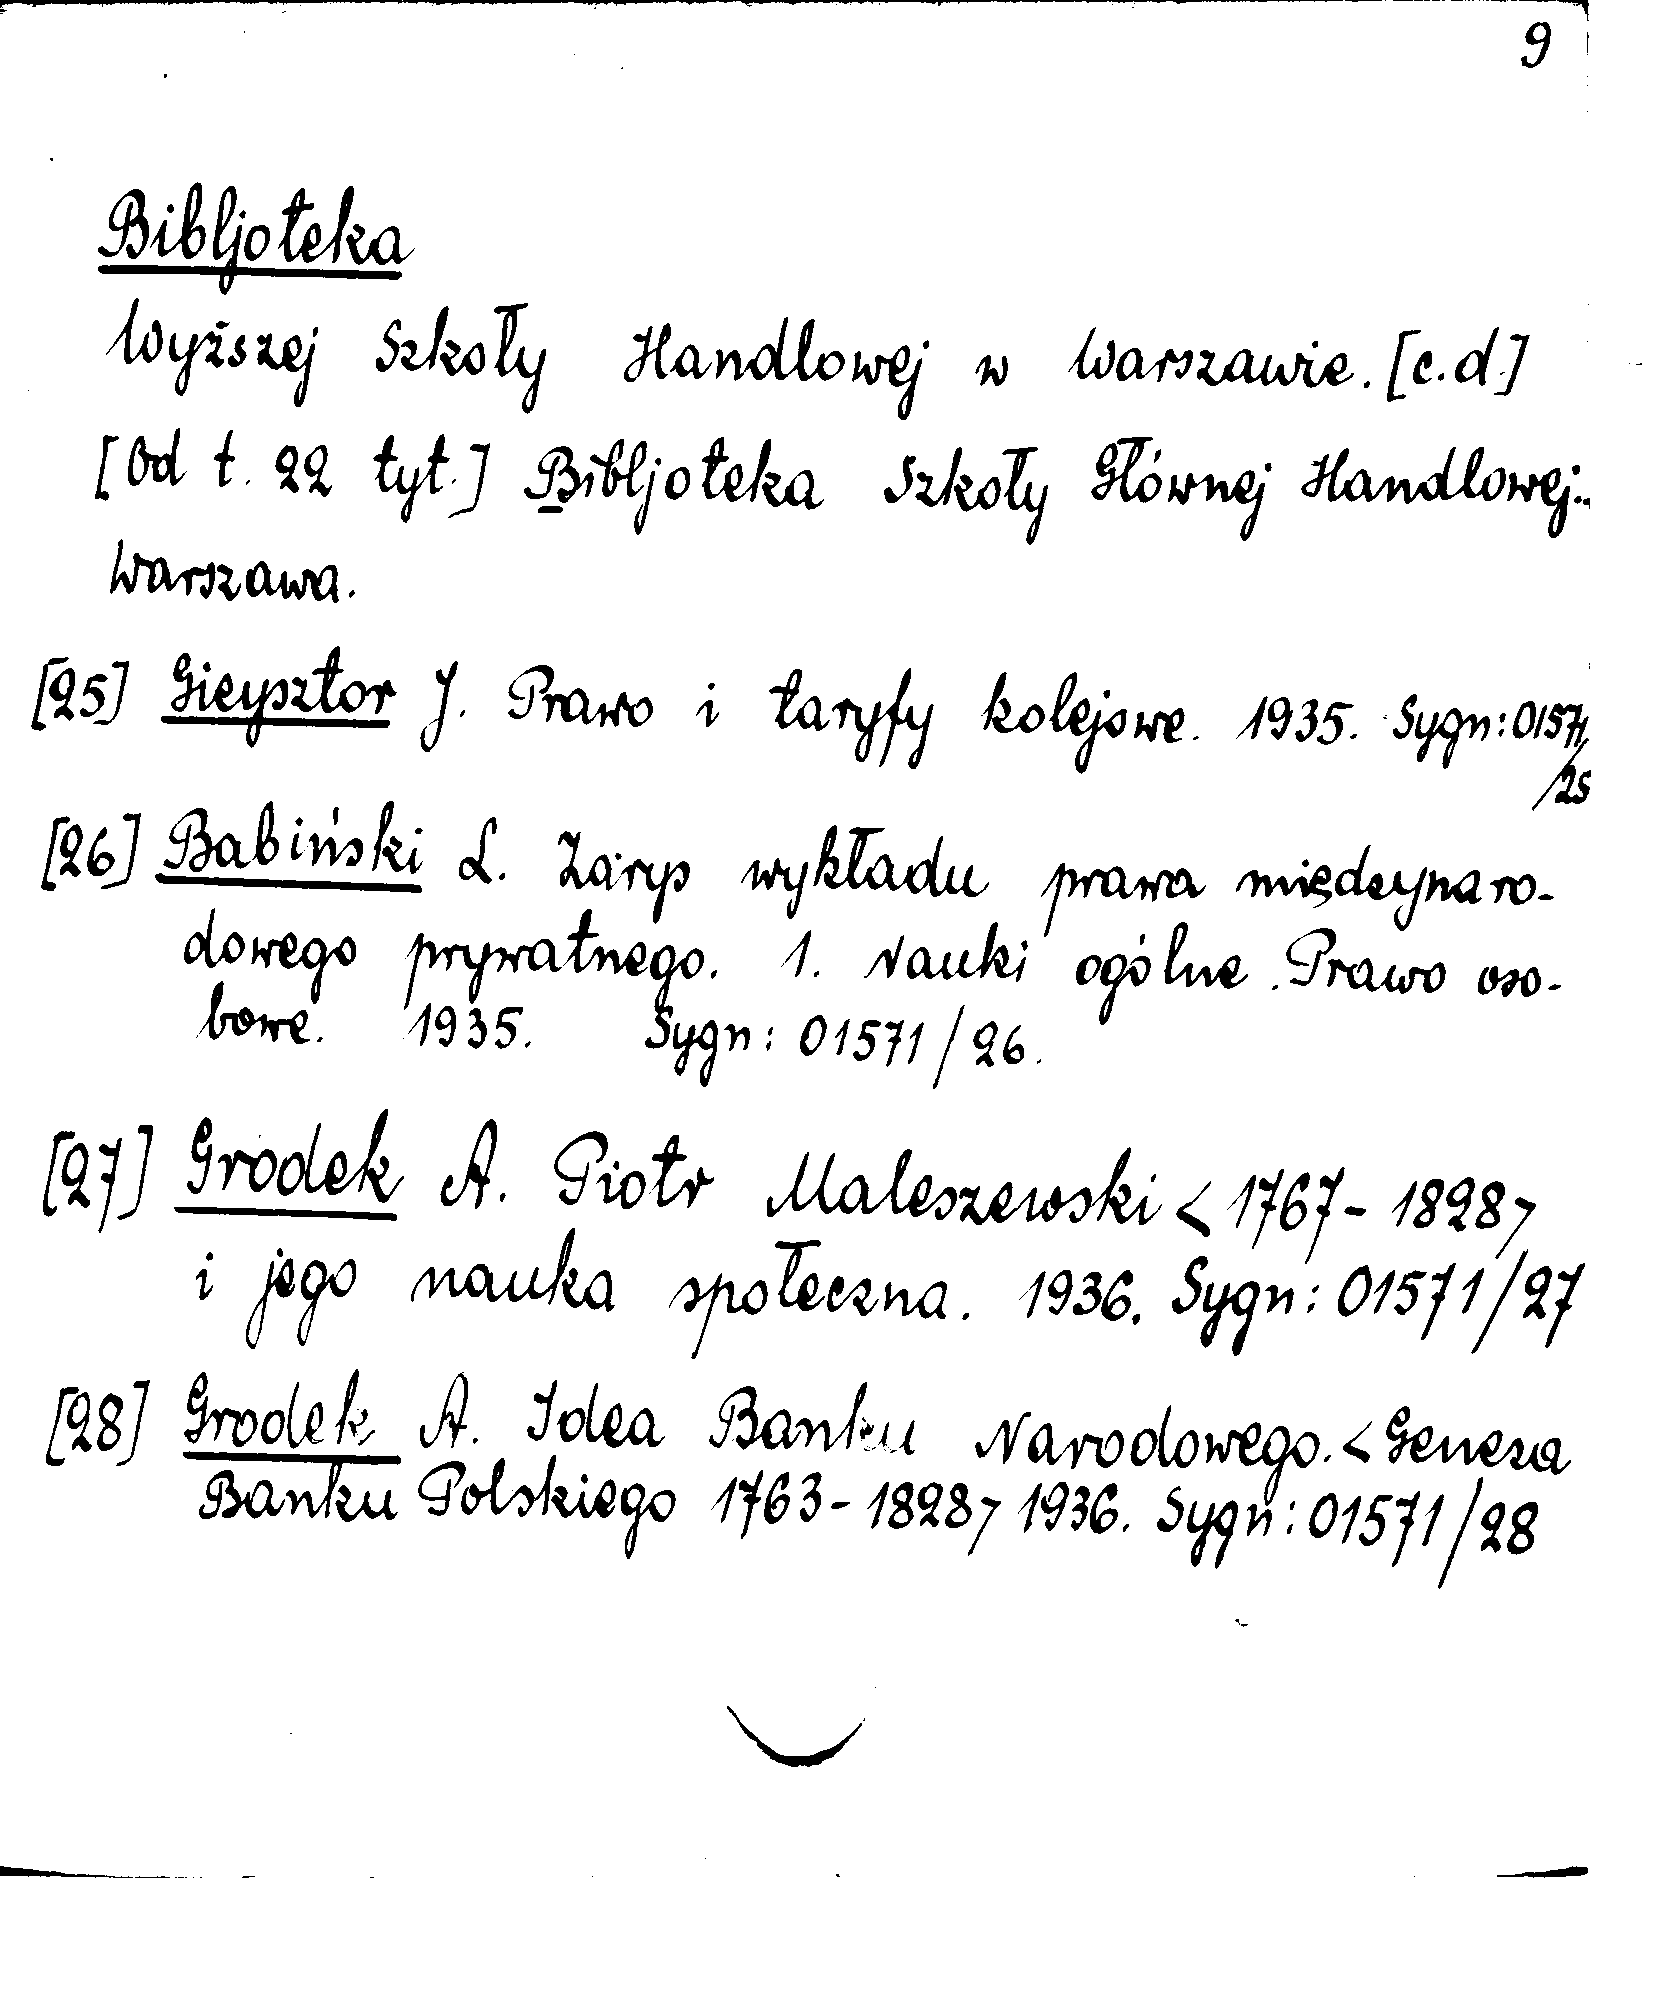 9
Bibljoteka
Wyższej Szkoły Handlowej w Warszawie. [c.d.]
[Od t. 22 tyt.] Bibljoteka Szkoły Głównej Handlowej..
Warszawa.
[25] Gieysztor J. Prawo i taryfy kolejowe. 1935. Sygn: 01571
/25
[26] Babiński L. Zarys wykładu prawa międzynaro-
dowego prywatnego. 1. Nauki ogólne. Prawo oso-
bowe. 1935. Sygn: 01571/26.
[27] Grodek A. Piotr Maleszewski <1767-1828>
i jego nauka społeczna. 1936. Sygn: 01571/27
[28] Grodek A. Idea Banku Narodowego. <Geneza
Banku Polskiego 1763-1828> 1936. Sygn: 01571/28